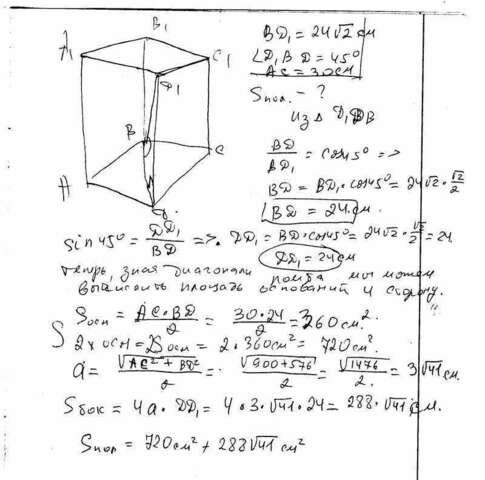 B₁
A₁
C₁
D₁
B
C
A
D
BD₁ = 24√2 см
∠D₁BD = 45°
AC = 30 см
Sпол. - ?
из Δ D₁DB
BD/BD₁ = cos45° =>
BD = BD₁·cos45° = 24√2·√2/2
∠BD = 24 см.
sin45° = DD₁/BD => DD₁ = BD·cos45° = 24√2·√2/2 = 24
DD₁ = 24 см
теперь, зная диагонали ромба мы можем
вычислить площадь оснований и сторону.
Sосн = AC·BD/2 = 30·24/2 = 360 см².
S 2х осн = 2Sосн = 2·360 см² = 720 см².
a = √AC²+BD²/2 = √900+576/2 = √1476/2 = 3√41 см.
Sбок = 4a·DD₁ = 4·3·√41·24 = 288·√41 см.
Sпол = 720 см² + 288√41 см²